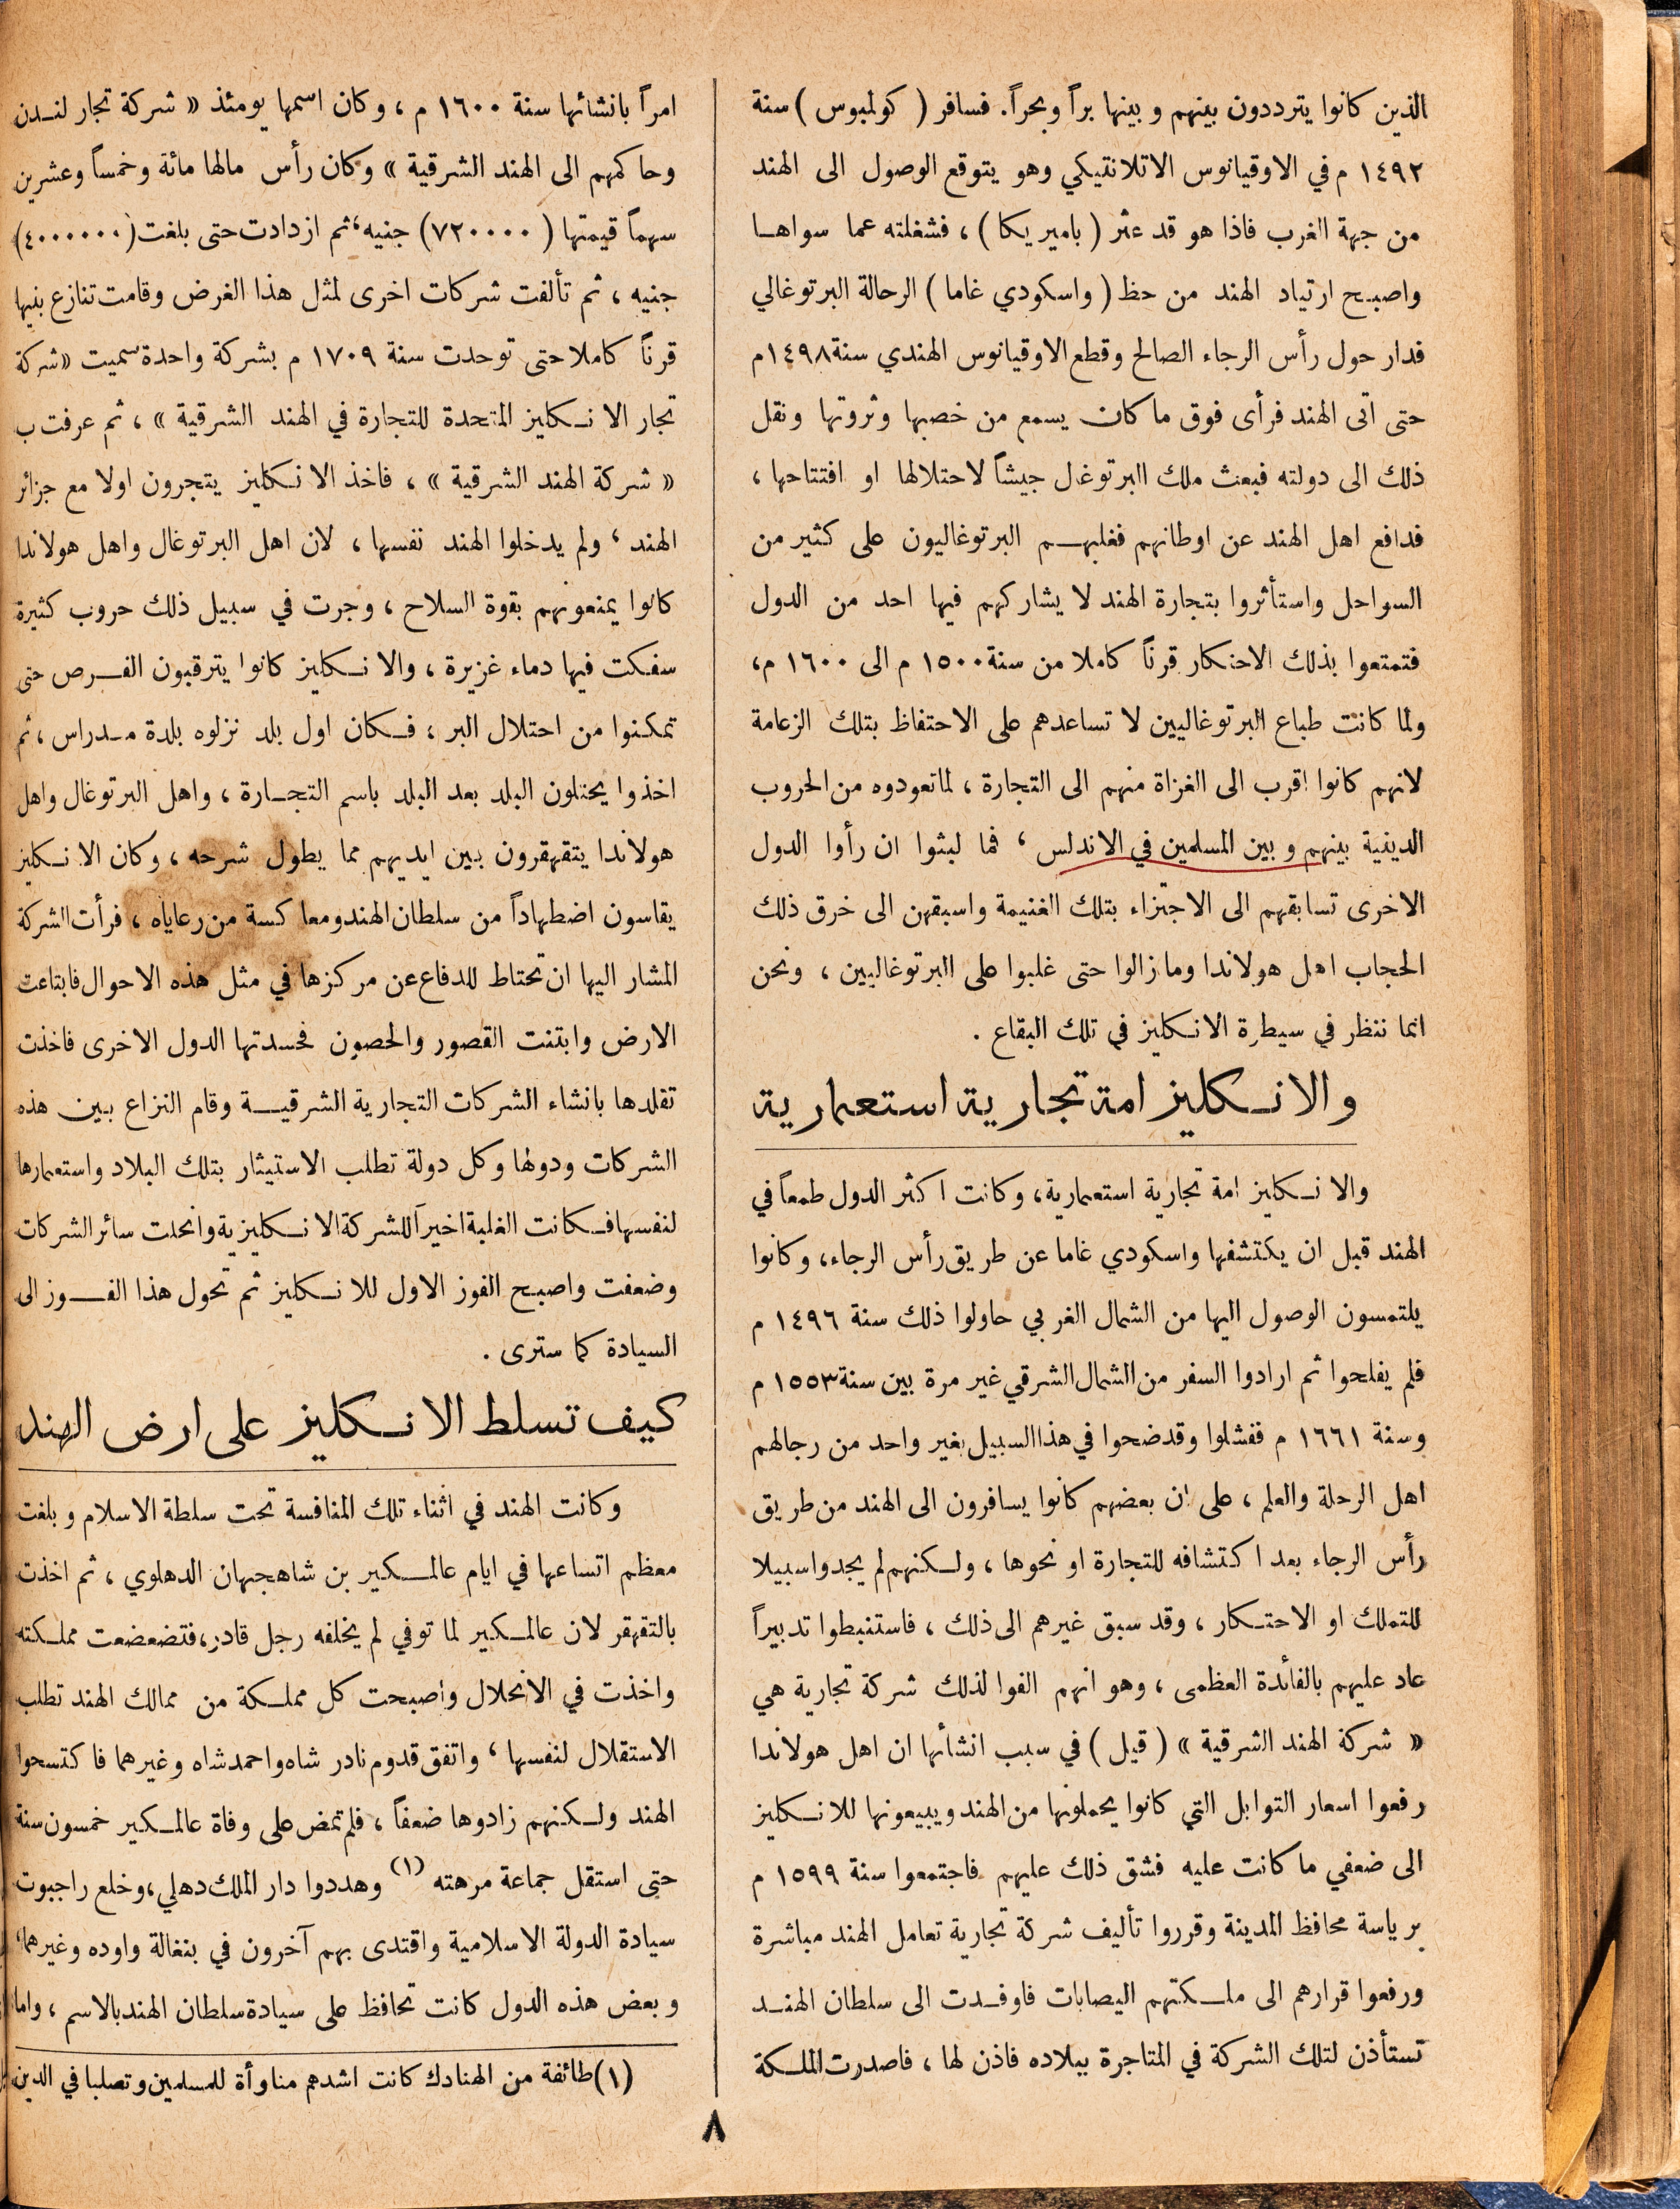 الذين كانوا يترددون بينهم وبينها براً وبحراً. فسافر ( كولمبوس ) سنة
١٤٩٢ م في الاوقيانوس الاتلانتيكي وهو يتوقع الوصول الى الهند
من جهة الغرب فاذا هو قد عثر ( باميريكا ) ، فشغلته عما سواها
واصبح ارتياد الهند من حظ ( واسكودي غاما ) الرحالة البرتوغالي
فدار حول رأس الرجاء الصالح وقطع الاوقيانوس الهندي سنة ١٤٩٨ م
حتى اتى الهند فرأى فوق ما كان يسمع من خصبها وثروتها ونقل
ذلك الى دولته فبعث ملك البرتوغال جيشاً لاحتلالها او افتتاحها ،
فدافع اهل الهند عن اوطانهم فغلبهم البرتوغاليون على كثير من
السواحل واستأثروا بتجارة الهند لا يشاركهم فيها احد من الدول
فتمتعوا بذلك الاحتكار قرناً كاملا من سنة ١٥٠٠ م الى ١٦٠٠ م،
ولما كانت طباع البرتوغاليين لا تساعدهم على الاحتفاظ بتلك الزعامة
لانهم كانوا اقرب الى الغزاة منهم الى التجارة ، لما تعودوه من الحروب
الدينية بينهم وبين المسلمين في الاندلس ، فما لبثوا ان رأوا الدول
الاخرى تسابقهم الى الاجتزاء بتلك الغنيمة واسبقهن الى خرق ذلك
الحجاب اهل هولاندا وما زالوا حتى غلبوا على البرتوغاليين ، ونحن
انما ننظر في سيطرة الانكليز في تلك البقاع .
والانكليز امة تجارية استعمارية
والانكليز امة تجارية استعمارية، وكانت اكثر الدول طمعاً في
الهند قبل ان يكتشفها واسكودي غاما عن طريق رأس الرجاء، وكانوا
يلتمسون الوصول اليها من الشمال الغربي حاولوا ذلك سنة ١٤٩٦ م
فلم يفلحوا ثم ارادوا السفر من الشمال الشرقي غير مرة بين سنة ١٥٥٣ م
وسنة ١٦٦١ م ففشلوا وقد ضحوا في هذا السبيل بغير واحد من رجالهم
اهل الرحلة والعلم ، على ان بعضهم كانوا يسافرون الى الهند من طريق
رأس الرجاء بعد اكتشافه للتجارة او نحوها ، ولكنهم لم يجدوا سبيلا
للتملك او الاحتكار ، وقد سبق غيرهم الى ذلك ، فاستنبطوا تدبيراً
عاد عليهم بالفائدة العظمى ، وهو انهم الفوا لذلك شركة تجارية هي
« شركة الهند الشرقية » ( قيل ) في سبب انشأئها ان اهل هولاندا
رفعوا اسعار التوابل التي كانوا يحملونها من الهند ويبيعونها للانكليز
الى ضعفي ما كانت عليه فشق ذلك عليهم فاجتمعوا سنة ١٥٩٩ م
برياسة محافظ المدينة وقرروا تأليف شركة تجارية تعامل الهند مباشرة
ورفعوا قرارهم الى ملكتهم اليصابات فاوفدت الى سلطان الهند
تستأذن لتلك الشركة في المتاجرة ببلاده فاذن لها ، فاصدرت الملكة
امراً بانشائها سنة ١٦٠٠ م ، وكان اسمها يومئذ « شركة تجار لندن
وحاكمهم الى الهند الشرقية » وكان رأس مالها مائة وخمساً وعشرين
سهماً قيمتها ( ٧٢٠٠٠٠ ) جنيه، ثم ازدادت حتى بلغت (٤٠٠٠٠٠٠)
جنيه ، ثم تألفت شركات اخرى لمثل هذا الغرض وقامت تنازع بنيها
قرناً كاملا حتى توحدت سنة ١٧٠٩ م بشركة واحدة سميت «شركة
تجار الانكليز المتحدة للتجارة في الهند الشرقية » ، ثم عرفت ب
« شركة الهند الشرقية » ، فاخذ الانكليز يتجرون اولا مع جزائر
الهند ، ولم يدخلوا الهند نفسها ، لان اهل البرتوغال واهل هولاندا
كانوا يمنعونهم بقوة السلاح ، وجرت في سبيل ذلك حروب كثيرة
سفكت فيها دماء غزيرة ، والانكليز كانوا يترقبون الفرص حتى
تمكنوا من احتلال البر ، فكان اول بلد نزلوه بلدة مدراس ، ثم
اخذوا يحتلون البلد بعد البلد باسم التجارة ، واهل البرتوغال واهل
هولاندا يتقهقرون بين ايديهم مما يطول شرحه ، وكان الانكليز
يقاسون اضطهاداً من سلطان الهند ومعاكسة من رعاياه ، فرأت الشركة
المشار اليها ان تحتاط للدفاع عن مركزها في مثل هذه الاحوال فابتاعت
الارض وابتنت القصور والحصون فحسدتها الدول الاخرى فاخذت
تقلدها بانشاء الشركات التجارية الشرقية وقام النزاع بين هذه
الشركات ودولها وكل دولة تطلب الاستيثار بتلك البلاد واستعمارها
لنفسها فكانت الغلبة اخيراً للشركة الانكليزية وانحلت سائر الشركات
وضعفت واصبح الفوز الاول للانكليز ثم تحول هذا الفوز الى
السيادة كما سترى .
كيف تسلط الانكليز على ارض الهند
وكانت الهند في اثناء تلك المنافسة تحت سلطة الاسلام وبلغت
معظم اتساعها في ايام عالمكير بن شاهجهان الدهلوي ، ثم اخذت
بالتقهقر لان عالمكير لما توفي لم يخلفه رجل قادر، فتضعضعت مملكته
واخذت في الانحلال واصبحت كل مملكة من ممالك الهند تطلب
الاستقلال لنفسها ، واتفق قدوم نادر شاه واحمد شاه وغيرهما فاكتسحوا
الهند ولكنهم زادوها ضعفاً ، فلم تمض على وفاة عالمكير خمسون سنة
حتى استقل جماعة مرهته (١) وهددوا دار الملك دهلي، وخلع راجبوت
سيادة الدولة الاسلامية واقتدى بهم آخرون في بنغالة واوده وغيرهما،
وبعض هذه الدول كانت تحافظ على سيادة سلطان الهند بالاسم ، واما
(١) طائفة من الهنادك كانت اشدهم مناوأة للمسلمين وتصلبا في الدين
٨